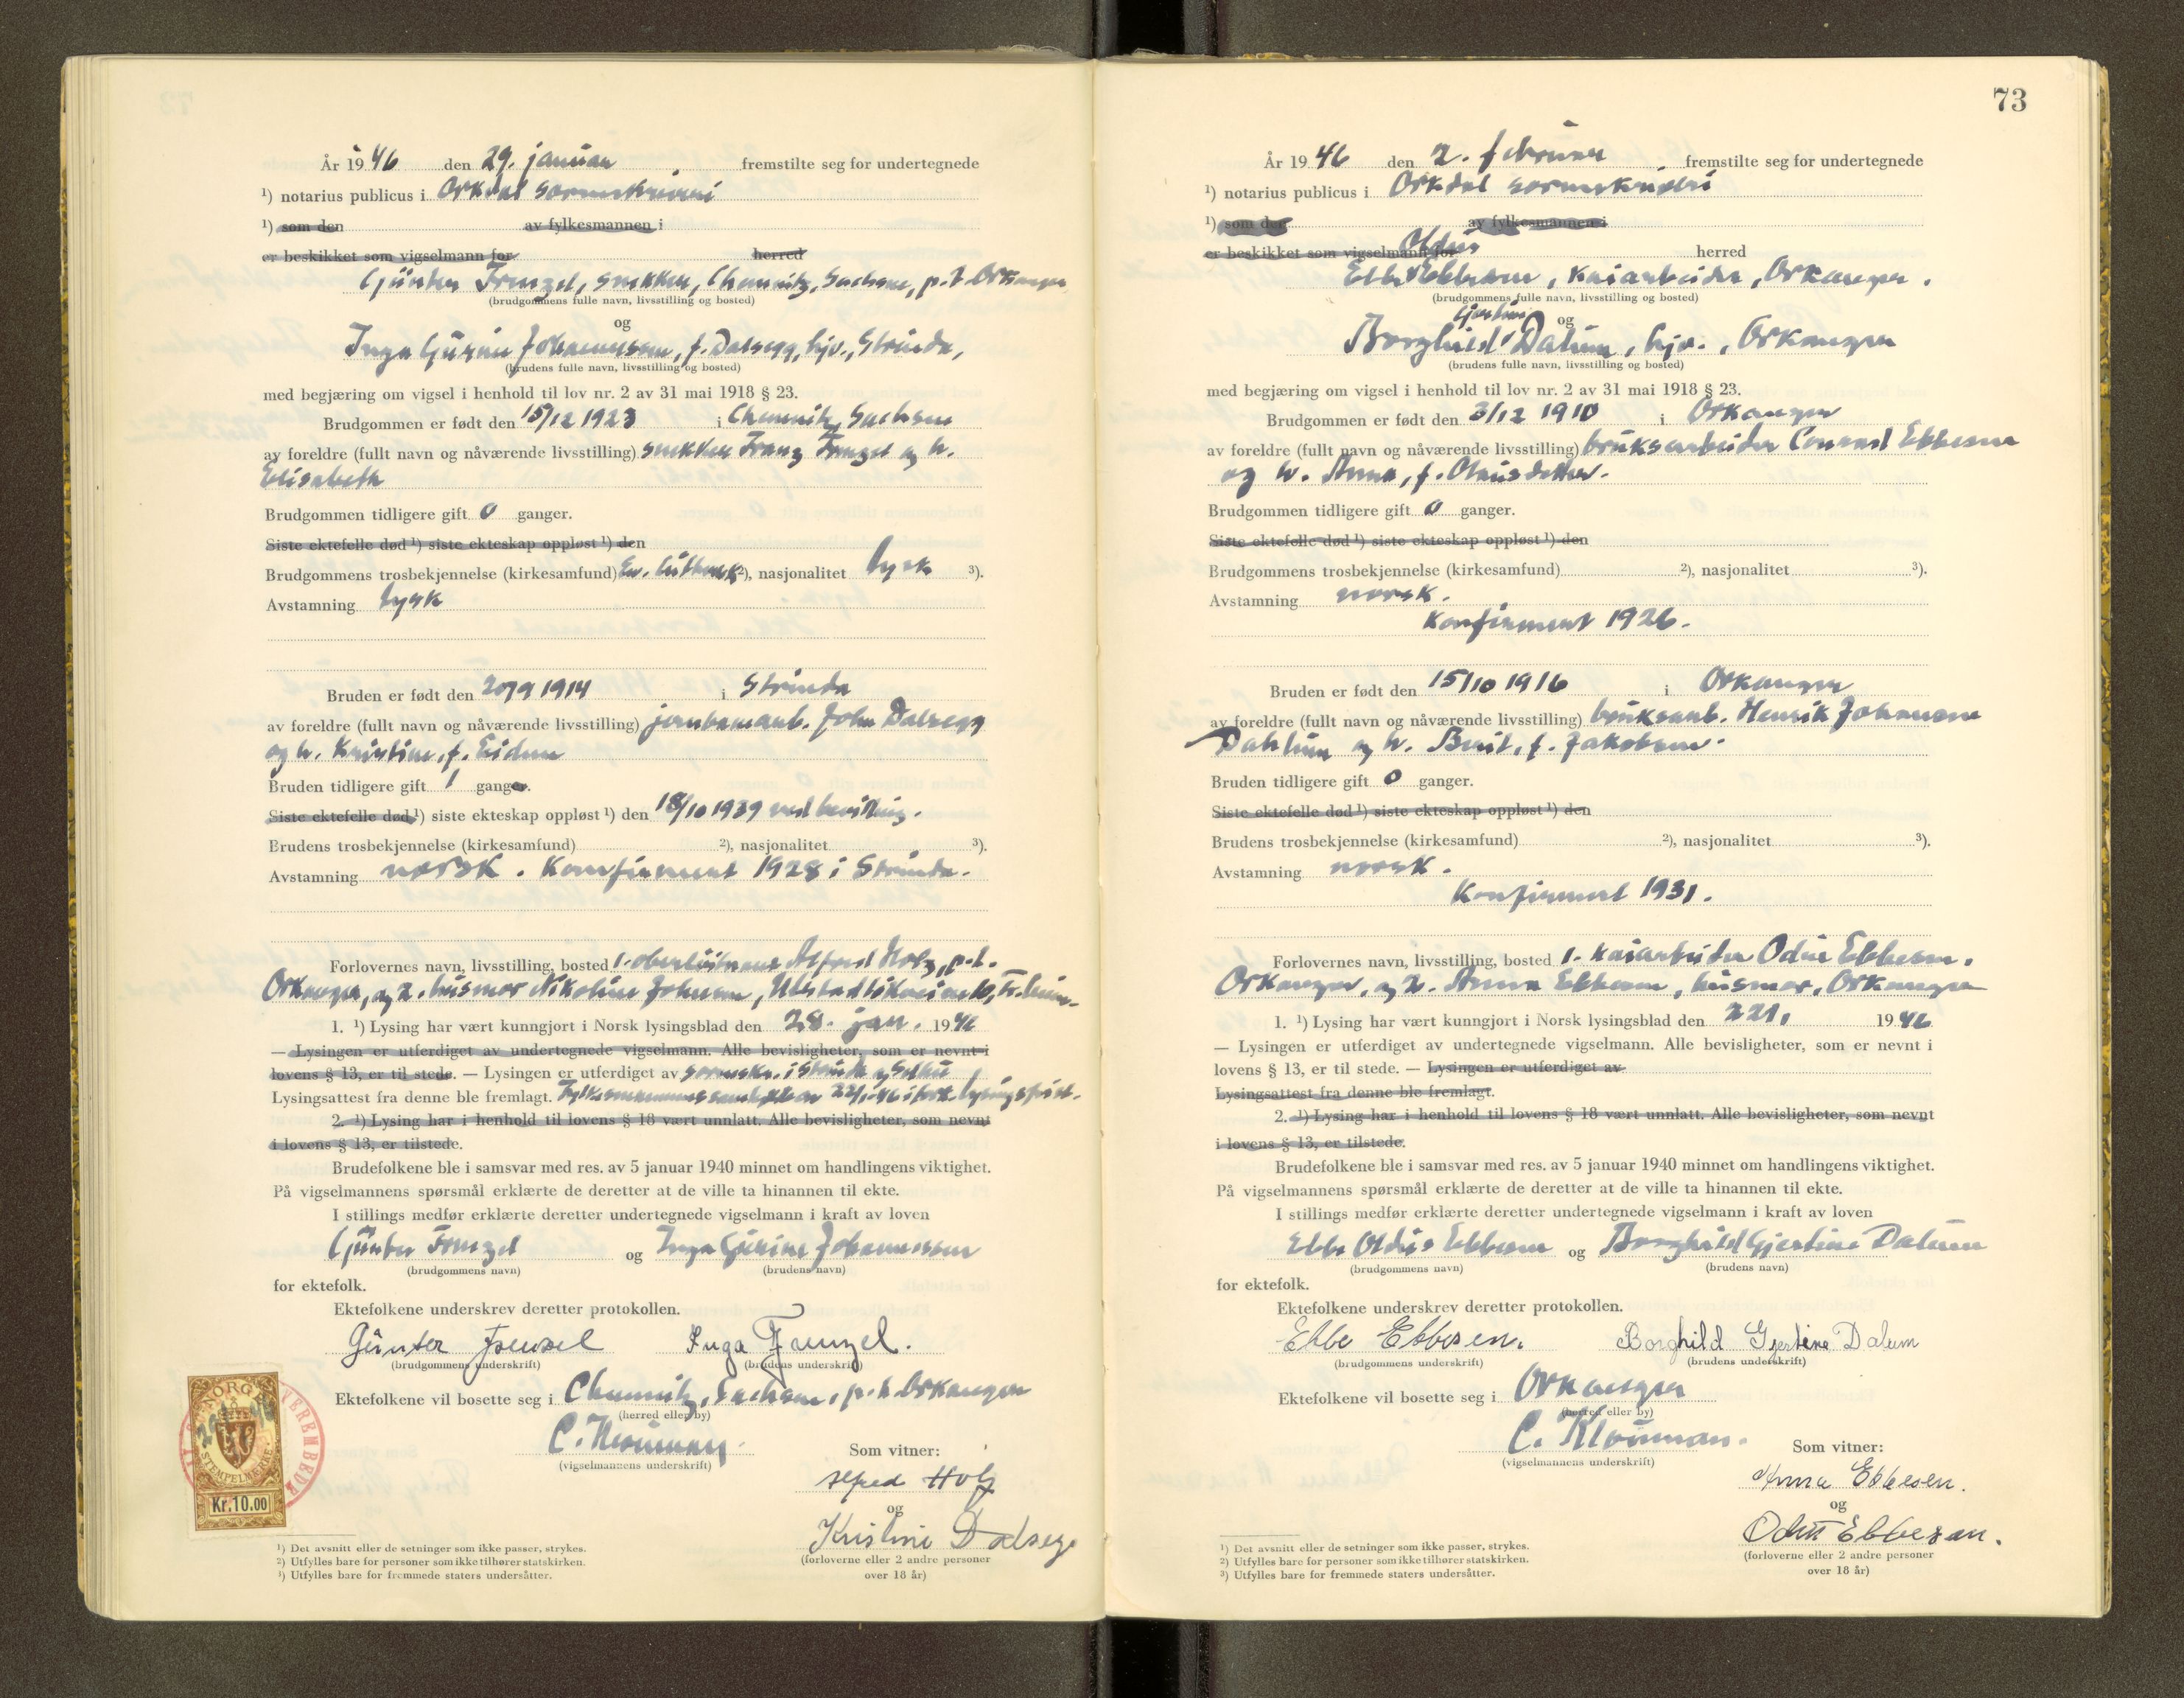 År 1946 den 29. januar fremstilte seg for undertegnede
¹) notarius publicus i Orkdal sorenskriveri
¹) som den av fylkesmannen i
er beskikket som vigselmann for herred
Günter Frenzel, snekker, Chemnitz, Sachsen, p.t. Orkanger
(brudgommens fulle navn, livsstilling og bosted)
og
Inga Gurine Johannessen, f. Dalsegg, hjv., Strinda,
(brudens fulle navn, livsstilling og bosted)
med begjæring om vigsel i henhold til lov nr. 2 av 31 mai 1918 § 23.
Brudgommen er født den 15/12 1923 i Chemnitz, Sachsen
av foreldre (fullt navn og nåværende livsstilling) snekker Franz Frenzel og h.
Elisabeth
Brudgommen tidligere gift 0 ganger.
Siste ektefelle død ¹) siste ekteskap oppløst ¹) den
Brudgommens trosbekjennelse (kirkesamfund) Ev. luthersk ²), nasjonalitet tysk ³).
Avstamning tysk
Bruden er født den 20/9 1914 i Strinda
av foreldre (fullt navn og nåværende livsstilling) jernbanearb. John Dalsegg
og h. Kristine, f. Eidem
Bruden tidligere gift 1 ganger.
Siste ektefelle død ¹) siste ekteskap oppløst ¹) den 18/10 1939 ved bevilling.
Brudens trosbekjennelse (kirkesamfund) ²), nasjonalitet ³).
Avstamning norsk. Konfirmert 1928 i Strinda.
Forlovernes navn, livsstilling, bosted 1. oberleutnant Alfred Holz, p.t.
Orkanger, og 2. husmor Nikoline Johnsen,
1. ¹) Lysing har vært kunngjort i Norsk lysingsblad den 28. jan. 1946
— Lysingen er utferdiget av undertegnede vigselmann. Alle bevisligheter, som er nevnt i
lovens § 13, er til stede. — Lysingen er utferdiget av sorenskr. i Strinda og Selbu
Lysingsattest fra denne ble fremlagt. Fylkesmannens samtykke av 22/1-46 i fork. lysingsfrist.
2. ¹) Lysing har i henhold til lovens § 18 vært unnlatt. Alle bevisligheter, som nevnt
i lovens § 13, er tilstede.
Brudefolkene ble i samsvar med res. av 5 januar 1940 minnet om handlingens viktighet.
På vigselmannens spørsmål erklærte de deretter at de ville ta hinannen til ekte.
I stillings medfør erklærte deretter undertegnede vigselmann i kraft av loven
Günter Frenzel og Inga Gurine Johannessen
(brudgommens navn) (brudens navn)
for ektefolk.
Ektefolkene underskrev deretter protokollen.
Günter Frenzel Inga Frenzel.
(brudgommens underskrift) (brudens underskrift)
Ektefolkene vil bosette seg i Chemnitz, Sachsen, p.t. Orkanger
(herred eller by)
C. Klouman.
(vigselmannens underskrift)
Som vitner:
Alfred Holz
og
Kristine Dalsegg
(forloverne eller 2 andre personer
over 18 år)
NORGE
STEMPELMERKE
Kr.10.00
¹) Det avsnitt eller de setninger som ikke passer, strykes.
²) Utfylles bare for personer som ikke tilhører statskirken.
³) Utfylles bare for fremmede staters undersåtter.
73
År 1946 den 2. februar fremstilte seg for undertegnede
¹) notarius publicus i Orkdal sorenskriveri
¹) som den av fylkesmannen i
er beskikket som vigselmann for herred
Oldus
Ebbe Ebbesen, kaiarbeider, Orkanger.
(brudgommens fulle navn, livsstilling og bosted)
og
Gjertine
Borghild Dalum, hjv., Orkanger
(brudens fulle navn, livsstilling og bosted)
med begjæring om vigsel i henhold til lov nr. 2 av 31 mai 1918 § 23.
Brudgommen er født den 3/12 1910 i Orkanger
av foreldre (fullt navn og nåværende livsstilling) bruksarbeider Conrad Ebbesen
og h. Anna, f. Olausdotter.
Brudgommen tidligere gift 0 ganger.
Siste ektefelle død ¹) siste ekteskap oppløst ¹) den
Brudgommens trosbekjennelse (kirkesamfund) ²), nasjonalitet ³).
Avstamning norsk.
Konfirmert 1926.
Bruden er født den 15/10 1916 i Orkanger
av foreldre (fullt navn og nåværende livsstilling) bruksarb. Henrik Johansen
Dahlum og h. Berit, f. Jakobsen.
Bruden tidligere gift 0 ganger.
Siste ektefelle død ¹) siste ekteskap oppløst ¹) den
Brudens trosbekjennelse (kirkesamfund) ²), nasjonalitet ³).
Avstamning norsk.
Konfirmert 1931.
Forlovernes navn, livsstilling, bosted 1. kaiarbeider Odin Ebbesen,
Orkanger, og 2. Anna Ebbesen, husmor, Orkanger
1. ¹) Lysing har vært kunngjort i Norsk lysingsblad den 22/1 1946
— Lysingen er utferdiget av undertegnede vigselmann. Alle bevisligheter, som er nevnt i
lovens § 13, er til stede. — Lysingen er utferdiget av
Lysingsattest fra denne ble fremlagt.
2. ¹) Lysing har i henhold til lovens § 18 vært unnlatt. Alle bevisligheter, som nevnt
i lovens § 13, er tilstede.
Brudefolkene ble i samsvar med res. av 5 januar 1940 minnet om handlingens viktighet.
På vigselmannens spørsmål erklærte de deretter at de ville ta hinannen til ekte.
I stillings medfør erklærte deretter undertegnede vigselmann i kraft av loven
Ebbe Oldus Ebbesen og Borghild Gjertine Dalum
(brudgommens navn) (brudens navn)
for ektefolk.
Ektefolkene underskrev deretter protokollen.
Ebbe Ebbesen. Borghild Gjertine Dalum
(brudgommens underskrift) (brudens underskrift)
Ektefolkene vil bosette seg i Orkanger
(herred eller by)
C. Klouman.
(vigselmannens underskrift)
Som vitner:
Anna Ebbesen.
og
Odin Ebbesen.
(forloverne eller 2 andre personer
over 18 år)
¹) Det avsnitt eller de setninger som ikke passer, strykes.
²) Utfylles bare for personer som ikke tilhører statskirken.
³) Utfylles bare for fremmede staters undersåtter.